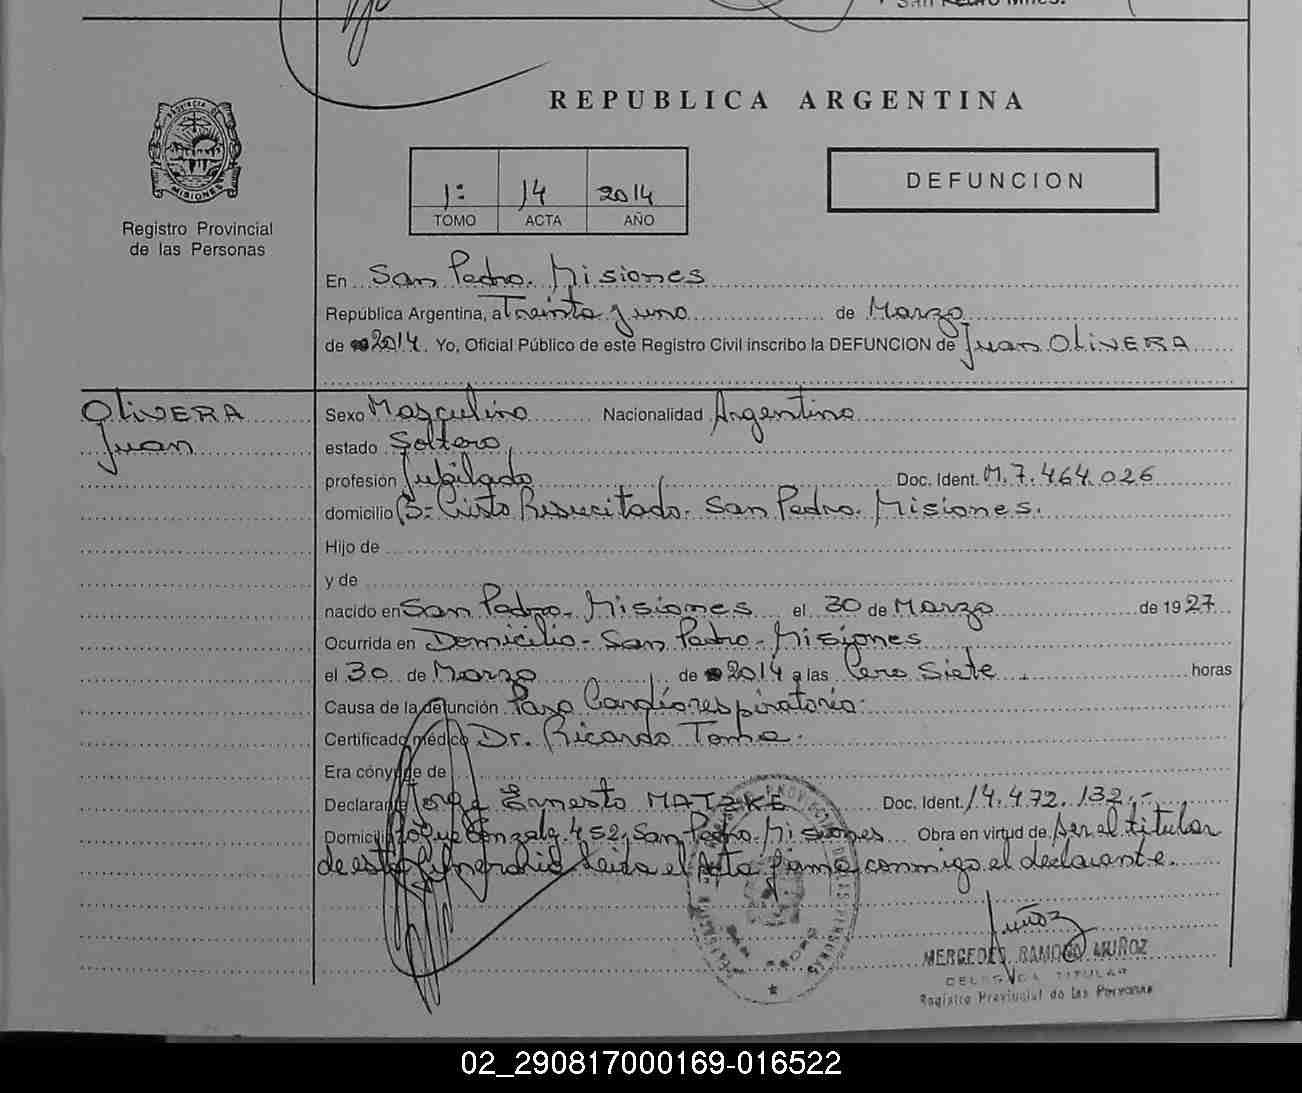 San Pedro Mnes.
REPUBLICA ARGENTINA
PROVINCIA DE
MISIONES
Registro Provincial
de las Personas
1º 14 2014
TOMO ACTA AÑO
DEFUNCION
En San Pedro. Misiones
República Argentina, a Treinta y uno de Marzo
de 2014. Yo, Oficial Público de este Registro Civil inscribo la DEFUNCION de Juan OLIVERA
OLIVERA
Juan
Sexo Masculino Nacionalidad Argentino
estado Soltero
profesión Jubilado Doc. Ident. M.7.464.026
domicilio B= Cristo Resucitado. San Pedro. Misiones.
Hijo de
y de
nacido en San Pedro. Misiones el 30 de Marzo de 1927
Ocurrida en Domicilio - San Pedro - Misiones
el 30 de Marzo de 2014 a las Cero Siete horas
Causa de la defunción Paro Cardiorespiratorio.
Certificado médico Dr. Ricardo Toma.
Era cónyuge de
Declarante Jorge Ernesto MATZKE Doc. Ident. 14.472.132.-
Domicilio Roque Gonzalez. 452. San Pedro. Misiones Obra en virtud de ser el titular
de este Leida el Acta firma conmigo el declarante.
Muñoz
MERCEDES RAMONA MUÑOZ
DELEGADA TITULAR
Registro Provincial de las Personas
02_290817000169-016522